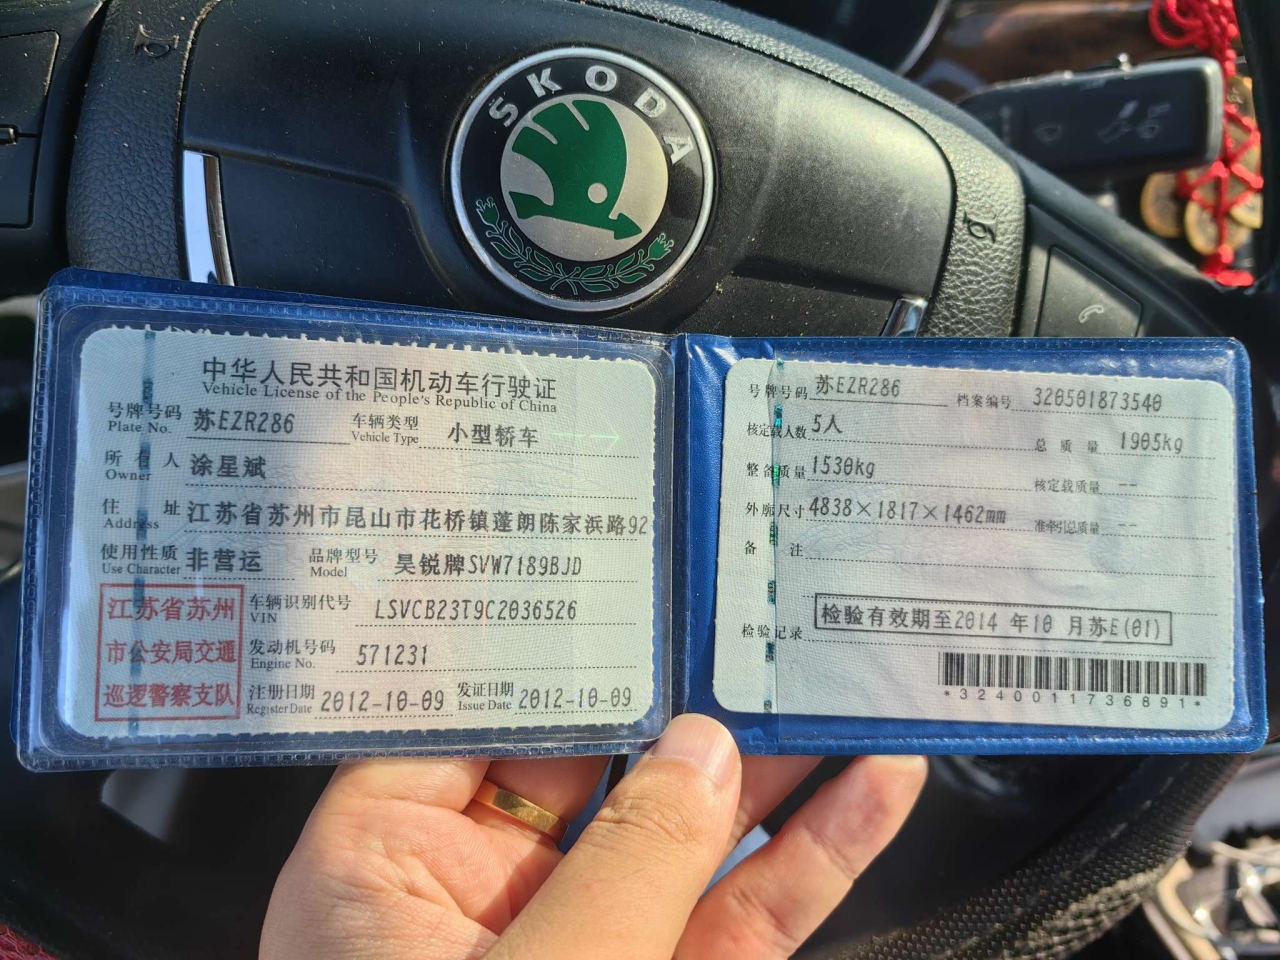 SKODA
中华人民共和国机动车行驶证
Vehicle License of the People's Republic of China
号牌号码 苏EZR286 车辆类型 小型轿车
Plate No. Vehicle Type
所有人 涂星斌
Owner
住址 江苏省苏州市昆山市花桥镇蓬朗陈家浜路92
Address
使用性质 非营运 品牌型号 昊锐牌SVW7189BJD
Use Character Model
江苏省苏州
市公安局交通
巡逻警察支队
车辆识别代号 LSVCB23T9C2036526
VIN
发动机号码 571231
Engine No.
注册日期 2012-10-09 发证日期 2012-10-09
Register Date Issue Date
号牌号码 苏EZR286 档案编号 320501873540
核定载人数 5人 总质量 1905kg
整备质量 1530kg 核定载质量 --
外廓尺寸 4838×1817×1462mm 准牵引总质量 --
备注
检验记录 检验有效期至2014年10月苏E(01)
*3240011736891*